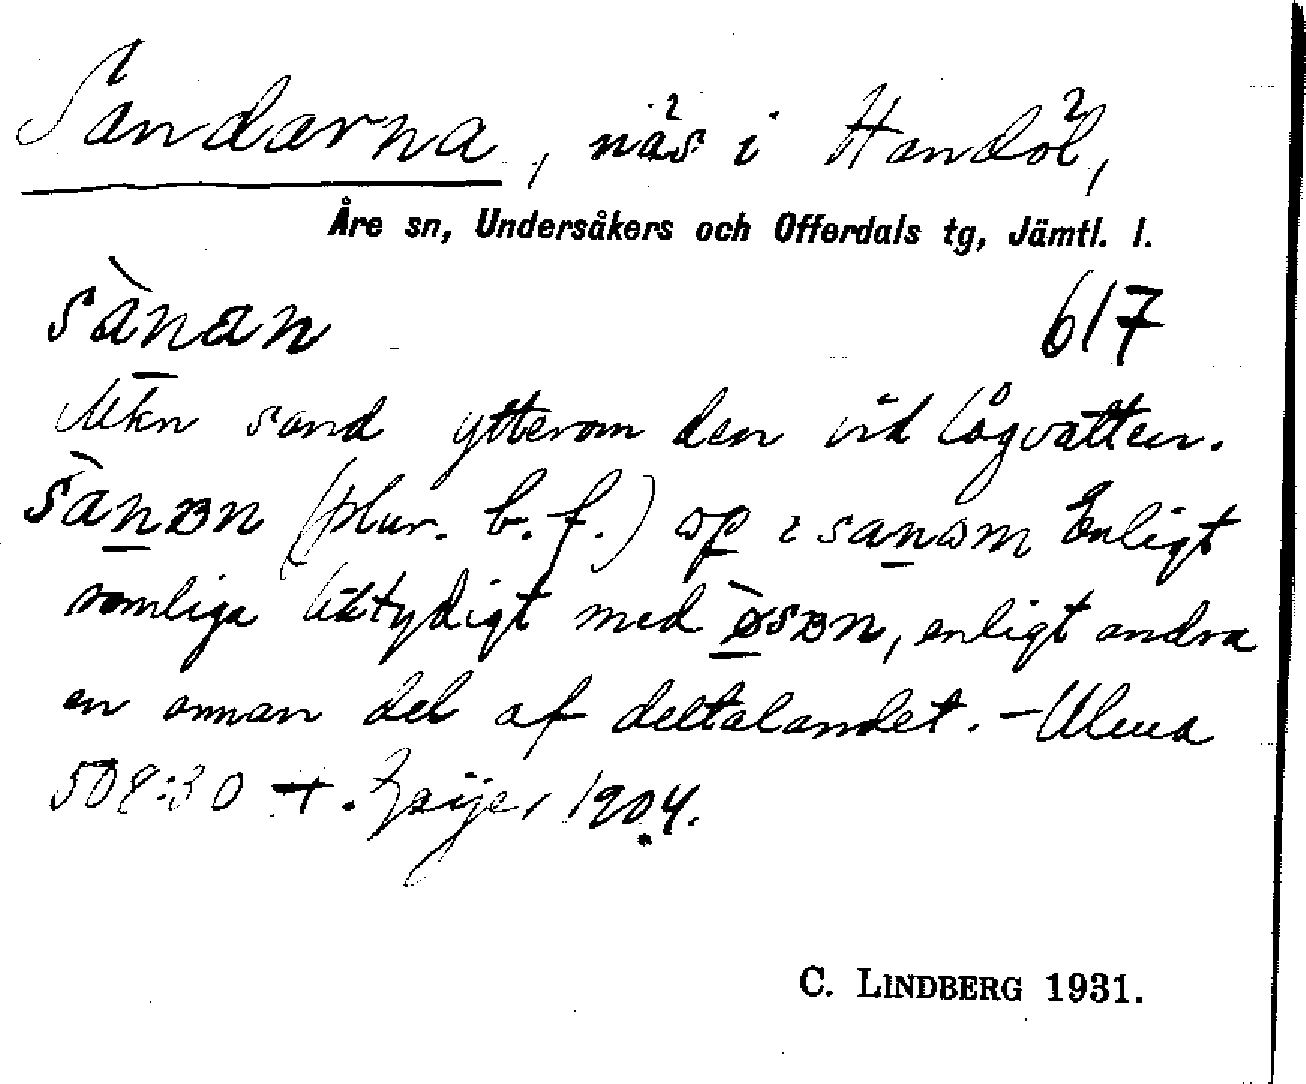 Sandarna, näs i Handöl,
Åre sn, Undersåkers och Offerdals tg, Jämtl. l.
sànan 617
Mkn sand ytterom den vid lågvatten.
sànɞn (plur. b. f.) op sanɷm Enligt
somliga liktydigt med òsɞn, enligt andra
en annan del af deltalandet. – Ulma
508:30 H. Geijer 1904.
C. LINDBERG 1931.